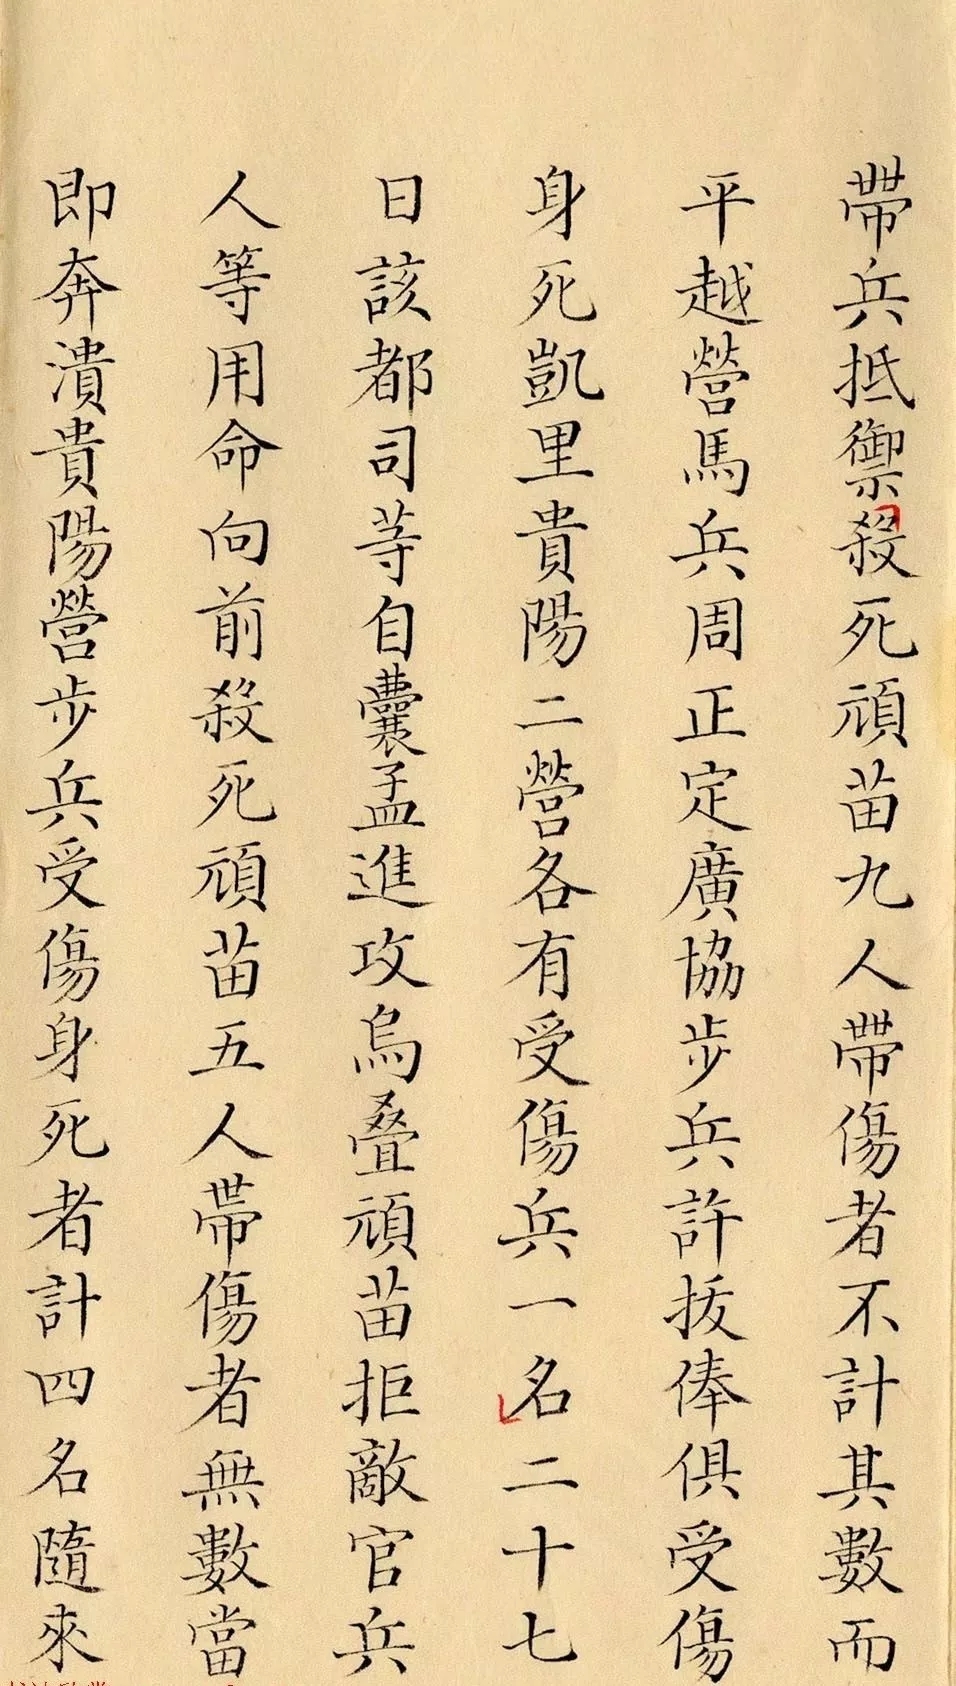 帶兵抵禦殺死頑苗九人帶傷者不計其數而
平越營馬兵周正定廣協步兵許拔俸俱受傷
身死凱里貴陽二營各有受傷兵一名二十七
日該都司等自囊孟進攻烏叠頑苗拒敵官兵
人等用命向前殺死頑苗五人帶傷者無數當
即奔潰貴陽營步兵受傷身死者計四名隨來